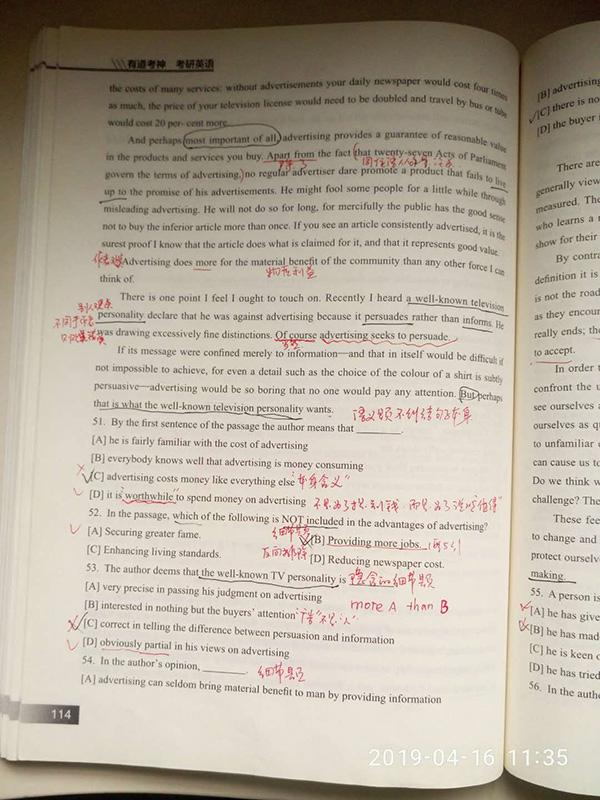 有道考神 考研英语
the costs of many services: without advertisements your daily newspaper would cost four times
as much, the price of your television license would need to be doubled and travel by bus or tube
would cost 20 per- cent more.
And perhaps most important of all, advertising provides a guarantee of reasonable value
in the products and services you buy. Apart from the fact that twenty-seven Acts of Parliament
govern the terms of advertising, no regular advertiser dare promote a product that fails to live
up to the promise of his advertisements. He might fool some people for a little while through
misleading advertising. He will not do so for long, for mercifully the public has the good sense
not to buy the inferior article more than once. If you see an article consistently advertised, it is the
surest proof I know that the article does what is claimed for it, and that it represents good value.
Advertising does more for the material benefit of the community than any other force I can
物质利益
think of.
There is one point I feel I ought to touch on. Recently I heard a well-known television
personality declare that he was against advertising because it persuades rather than informs. He
was drawing excessively fine distinctions. Of course advertising seeks to persuade.
If its message were confined merely to information—and that in itself would be difficult if
not impossible to achieve, for even a detail such as the choice of the colour of a shirt is subtly
persuasive—advertising would be so boring that no one would pay any attention. But perhaps
that is what the well-known television personality wants.
51. By the first sentence of the passage the author means that
[A] he is fairly familiar with the cost of advertising
[B] everybody knows well that advertising is money consuming
[C] advertising costs money like everything else "本身含义"
[D] it is worthwhile to spend money on advertising
52. In the passage, which of the following is NOT included in the advantages of advertising?
细节题
[A] Securing greater fame. [B] Providing more jobs.
[C] Enhancing living standards. [D] Reducing newspaper cost.
53. The author deems that the well-known TV personality is
[A] very precise in passing his judgment on advertising
more A than B
[B] interested in nothing but the buyers' attention
[C] correct in telling the difference between persuasion and information
[D] obviously partial in his views on advertising
54. In the author's opinion, 细节题
[A] advertising can seldom bring material benefit to man by providing information
114
[B] advertising
[C] there is no
[D] the buyer
There are
generally view
measured. The
who learns a
show for their
By contra
definition it is
is not the road
as they encour
really ends; the
to accept.
In order t
confront the u
see ourselves a
ourselves as q
to unfamiliar
can cause us to
Do we think w
challenge? The
These fee
to change and
protect ourselve
making.
55. A person is
[A] he has give
[B] he has made
[C] he is keen o
[D] he has tried
56. In the autho
2019-04-16 11:35